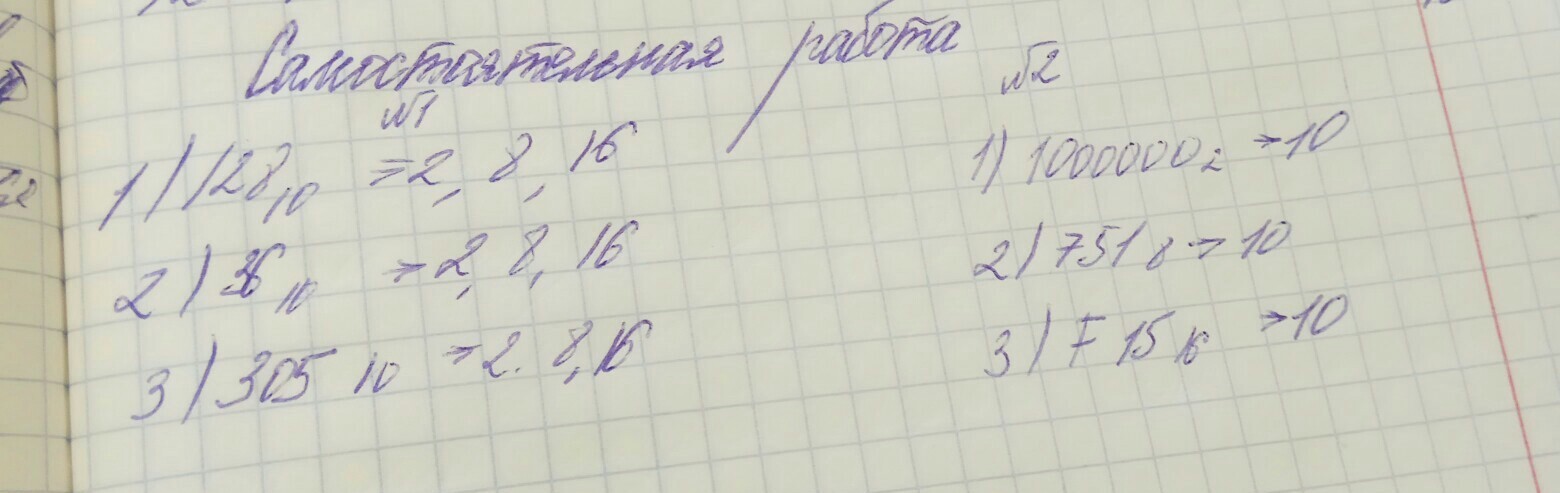 Самостоятельная работа
№1
1) 128₁₀ → 2, 8, 16
2) 36₁₀ → 2, 8, 16
3) 305₁₀ → 2. 8, 16
№2
1) 1000000₂ → 10
2) 751₈ → 10
3) F15₁₆ → 10